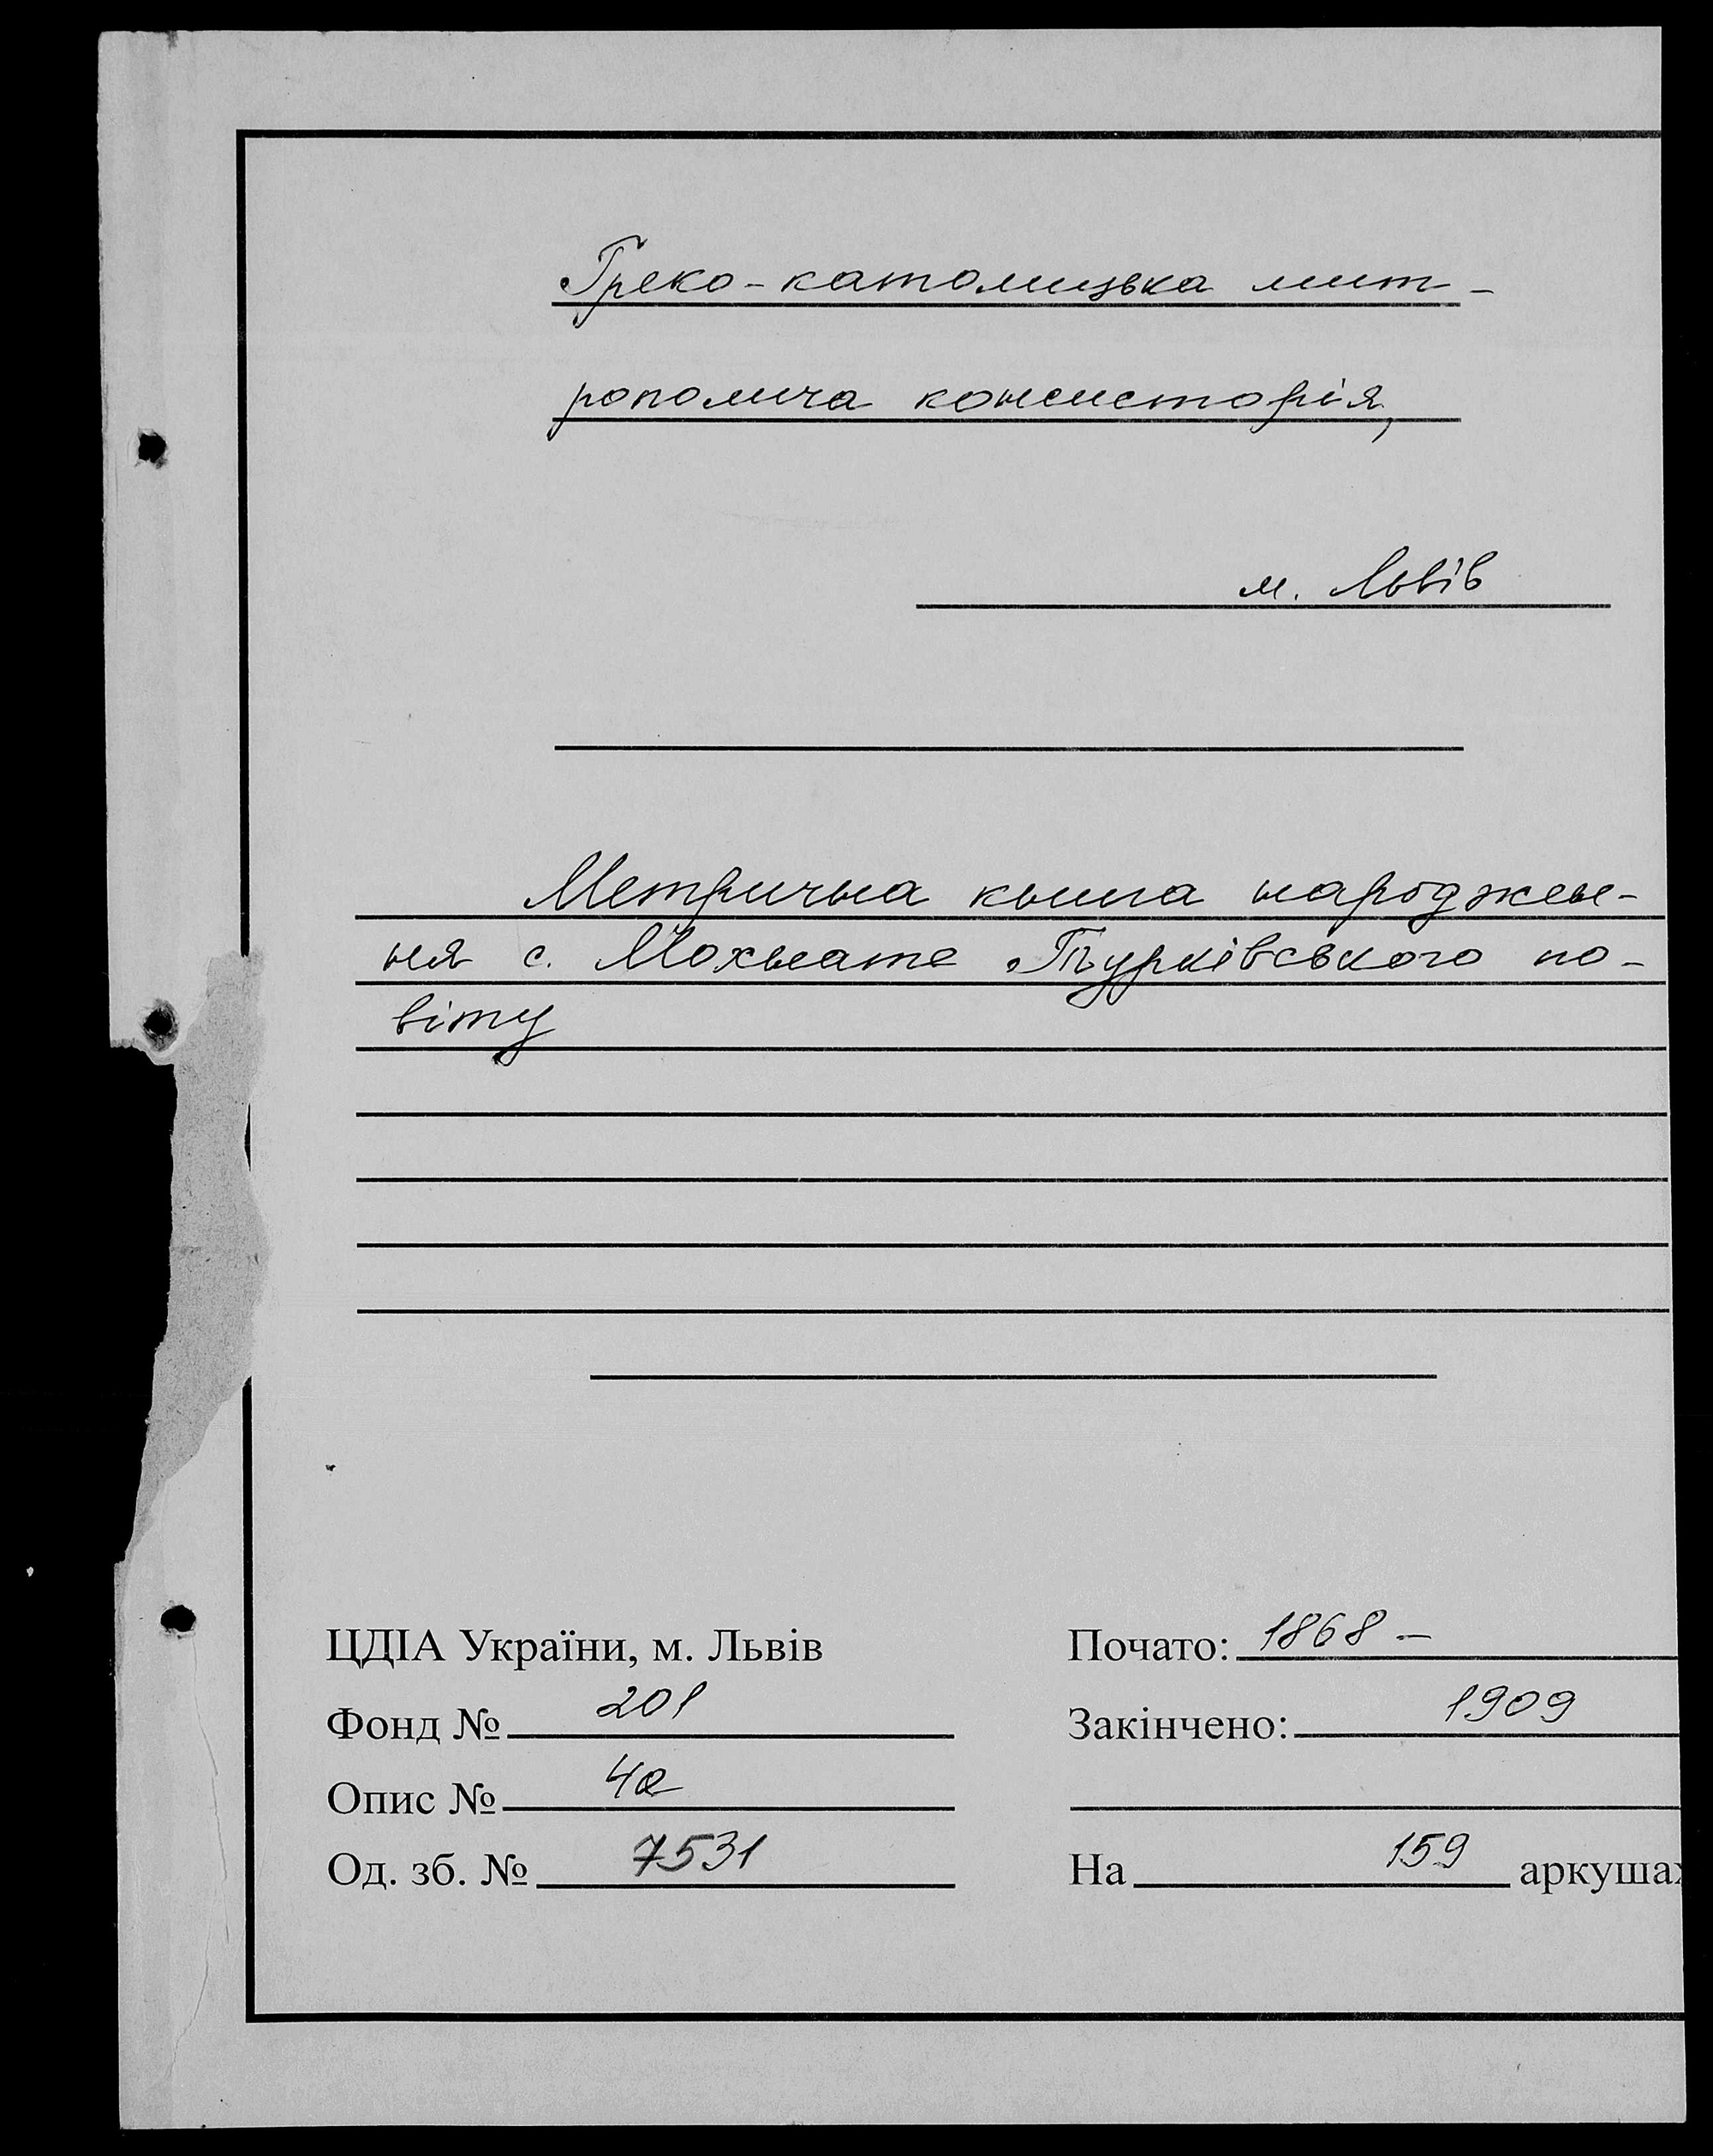 Греко-католицька мит-
рополича консисторія,
м. Львів
Метрична книга народжен-
ня с. Мохнате Турківського по-
віту
ЦДІА України, м. Львів
Почато: 1868 –
Фонд № 201
Закінчено: 1909
Опис № 4а
Од. зб. № 7531
На 159 аркушах